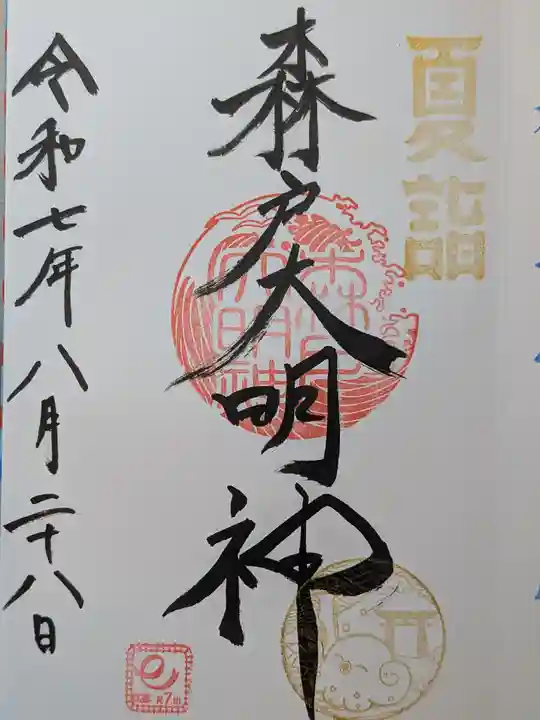 夏詣
森戸大明神
森戸大明神
令和七年八月二十八日
R7